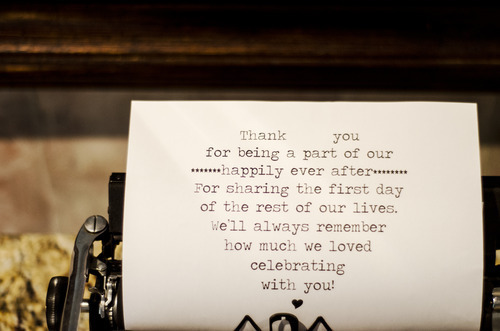 Thank you
for being a part of our
*******happily ever after********
For sharing the first day
of the rest of our lives.
We'll always remember
how much we loved
celebrating
with you!
♥